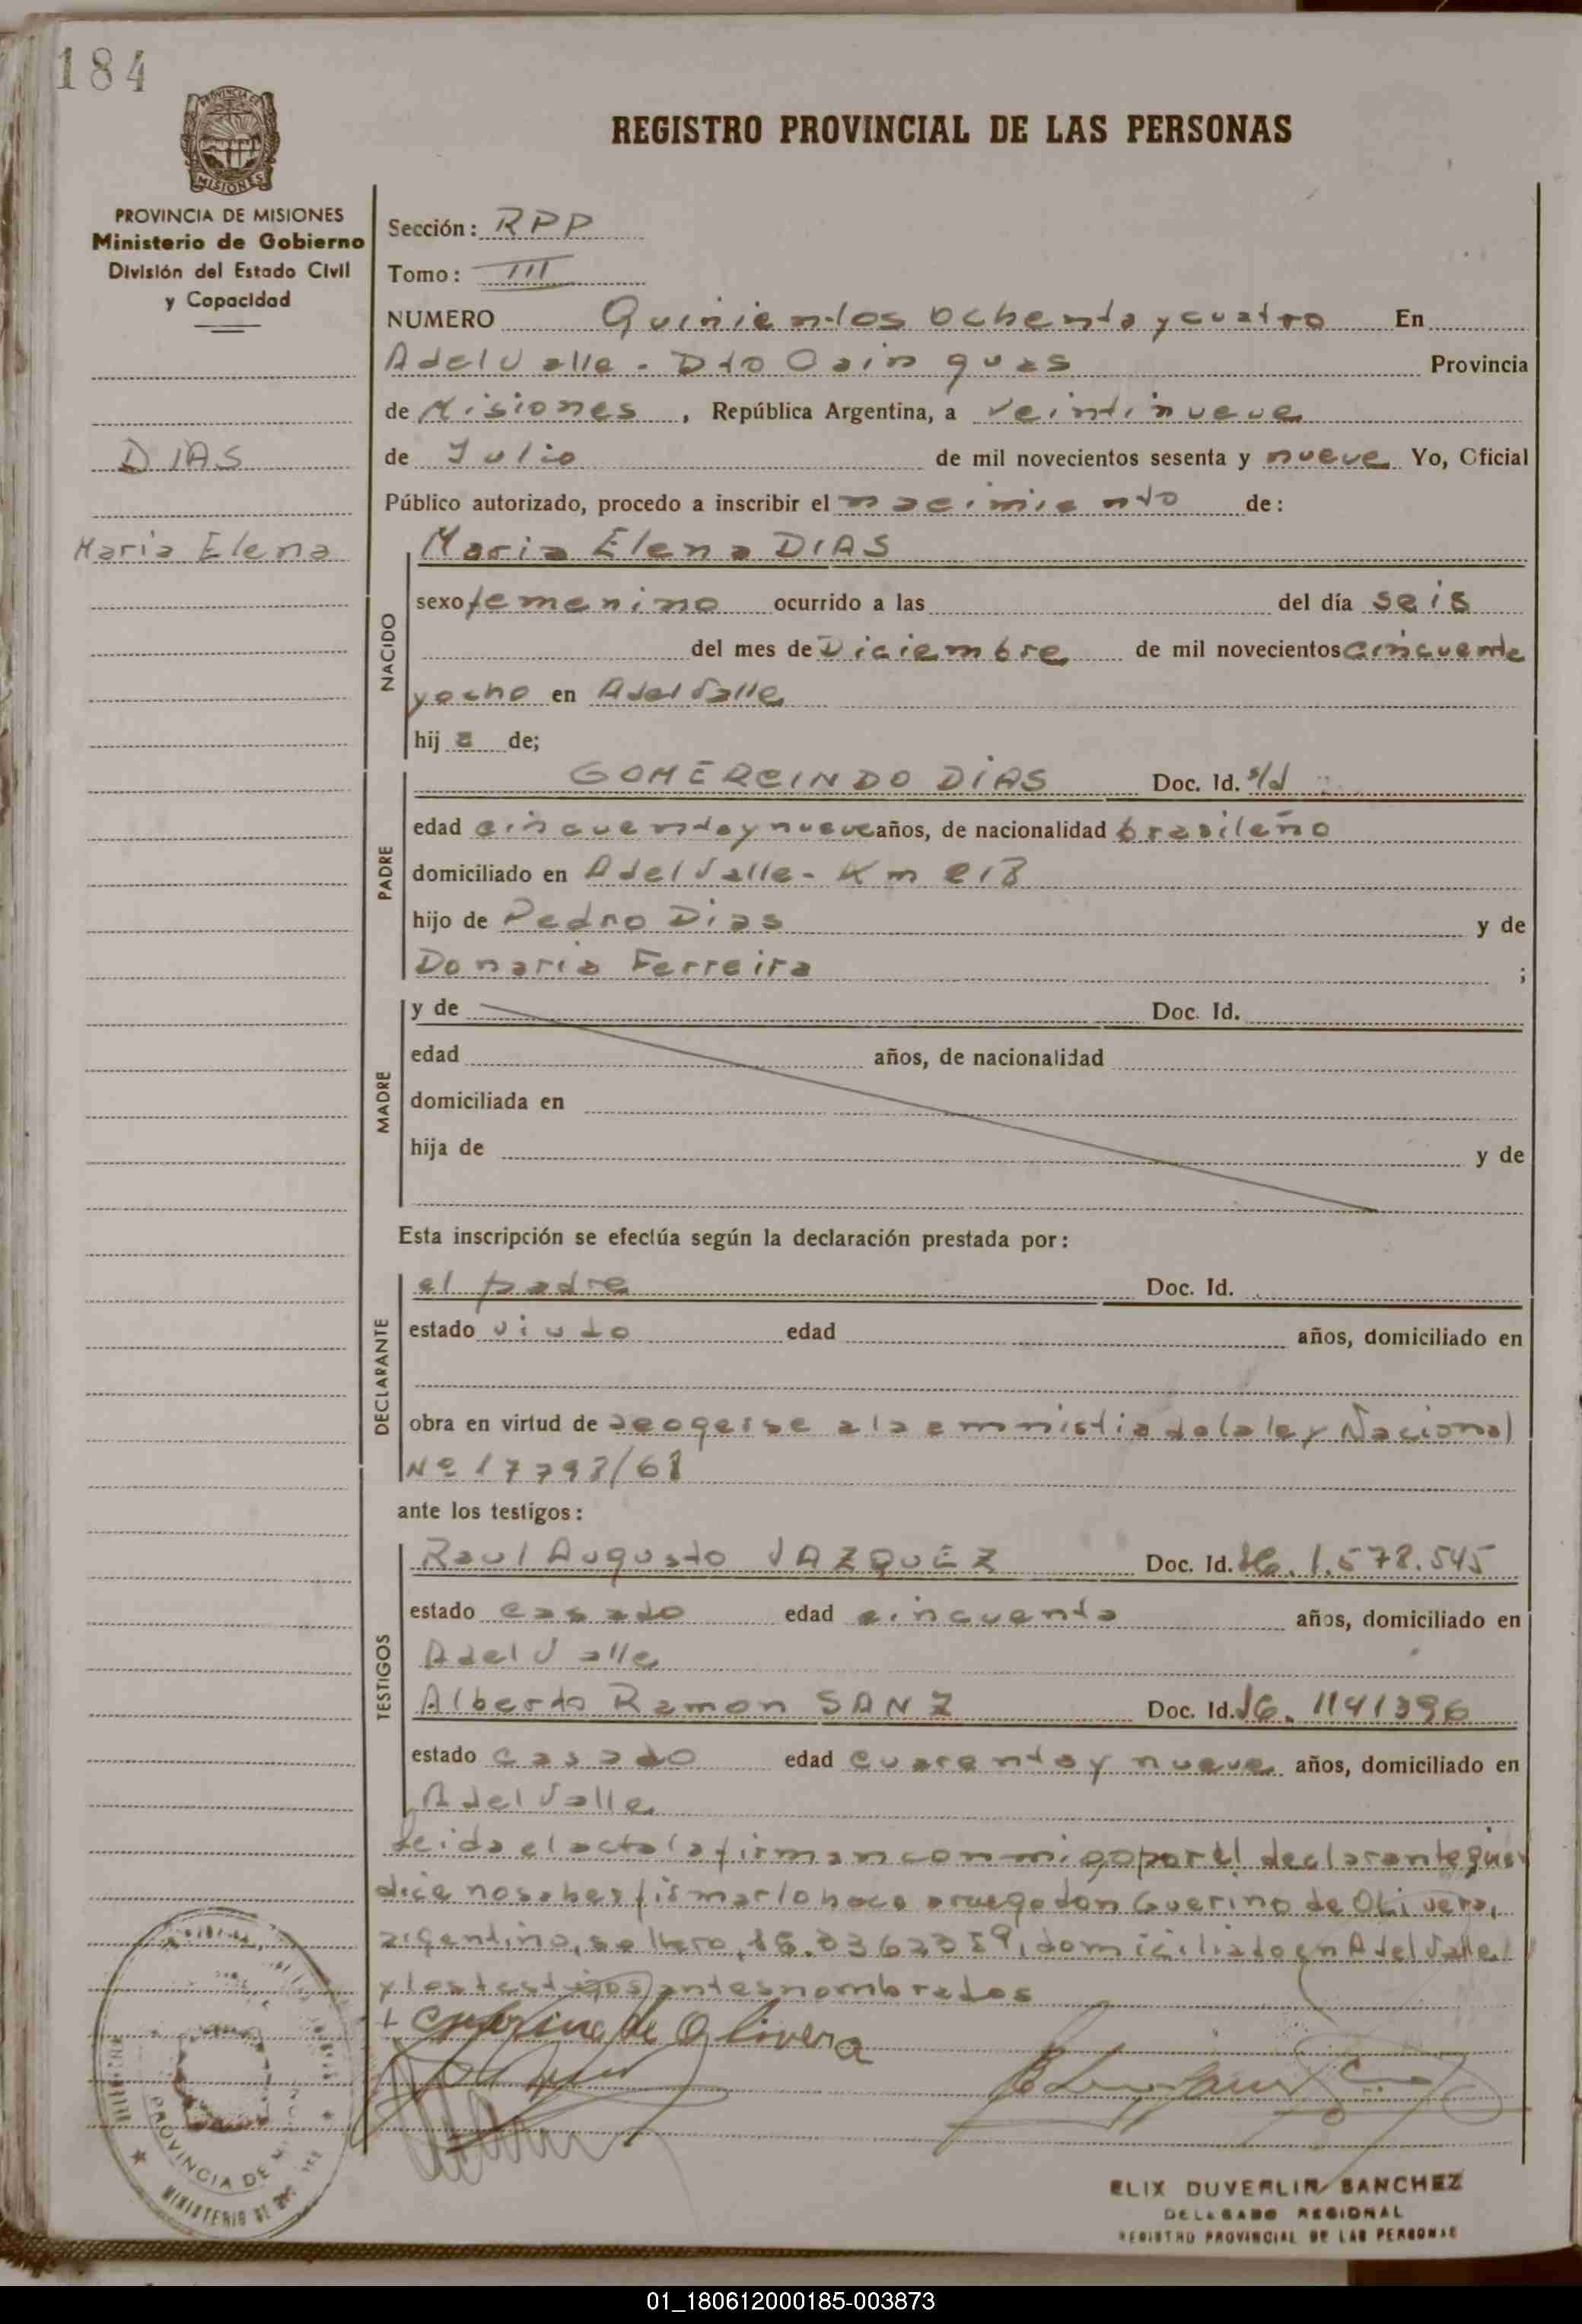 184
REGISTRO PROVINCIAL DE LAS PERSONAS
PROVINCIA DE MISIONES
Ministerio de Gobierno
División del Estado Civil
y Capacidad
DIAS
Maria Elena
Sección: RPP
Tomo: III
NUMERO Quinientos ochenta y cuatro En
A del Valle - Dto Cainguas Provincia
de Misiones, República Argentina, a veintinueve
de Julio de mil novecientos sesenta y nueve Yo, Oficial
Público autorizado, procedo a inscribir el nacimiento de:
NACIDO
Maria Elena DIAS
sexo femenino ocurrido a las del día seis
del mes de Diciembre de mil novecientos cincuenta
y ocho en A del Valle
hij a de;
PADRE
GOMERCINDO DIAS Doc. Id. s/d
edad cincuenta y nueve años, de nacionalidad brasileño
domiciliado en A del Valle - Km 218
hijo de Pedro Dias y de
Donaria Ferreira ;
MADRE
y de Doc. Id.
edad años, de nacionalidad
domiciliada en
hija de y de
Esta inscripción se efectúa según la declaración prestada por:
DECLARANTE
el padre Doc. Id.
estado viudo edad años, domiciliado en
obra en virtud de acogerse a la amnistia de la ley Nacional
Nº 17793/68
ante los testigos:
TESTIGOS
Raul Augusto VAZQUEZ Doc. Id. 1.578.545
estado casado edad cincuenta años, domiciliado en
A del Valle
Alberto Ramon SANZ Doc. Id. 1141396
estado casado edad cuarenta y nueve años, domiciliado en
A del Valle
Leida el acta la firman conmigo por el declarante que
dice no saber firmar lo hace a ruego don Guerino de Olivera,
argentino, soltero, domiciliado en A del Valle
y los testigos antes nombrados
Guerino de Olivera
PROVINCIA DE
MINISTERIO DE
ELIX DUVERLIN SANCHEZ
DELEGADO REGIONAL
REGISTRO PROVINCIAL DE LAS PERSONAS
01_180612000185-003873